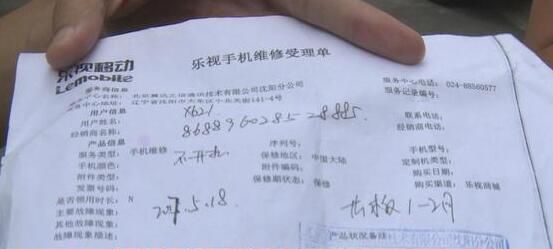 乐视移动
Lemobile
乐视手机维修受理单
服务商信息
服务中心名称: 北京 技术有限公司沈阳分公司
服务中心电话: 024-88560577
服务中心地址: 辽宁省沈阳市大东区小北关街141-4号
服务记录编号:
用户信息
用户姓名:
联系电话:
经销商名称:
经销商电话:
产品信息
服务类型: 手机维修 不开机
序列号:
手机型号:
手机颜色:
保修地区: 中国大陆
定制机类型:
附件类型:
附件编码:
购买日期:
发票号码:
保修期状态: 保修
购买渠道: 乐视商城
是否领用时长: N
主要故障现象:
其他故障现象:
故障现象描述:
1-2月
产品状况备注